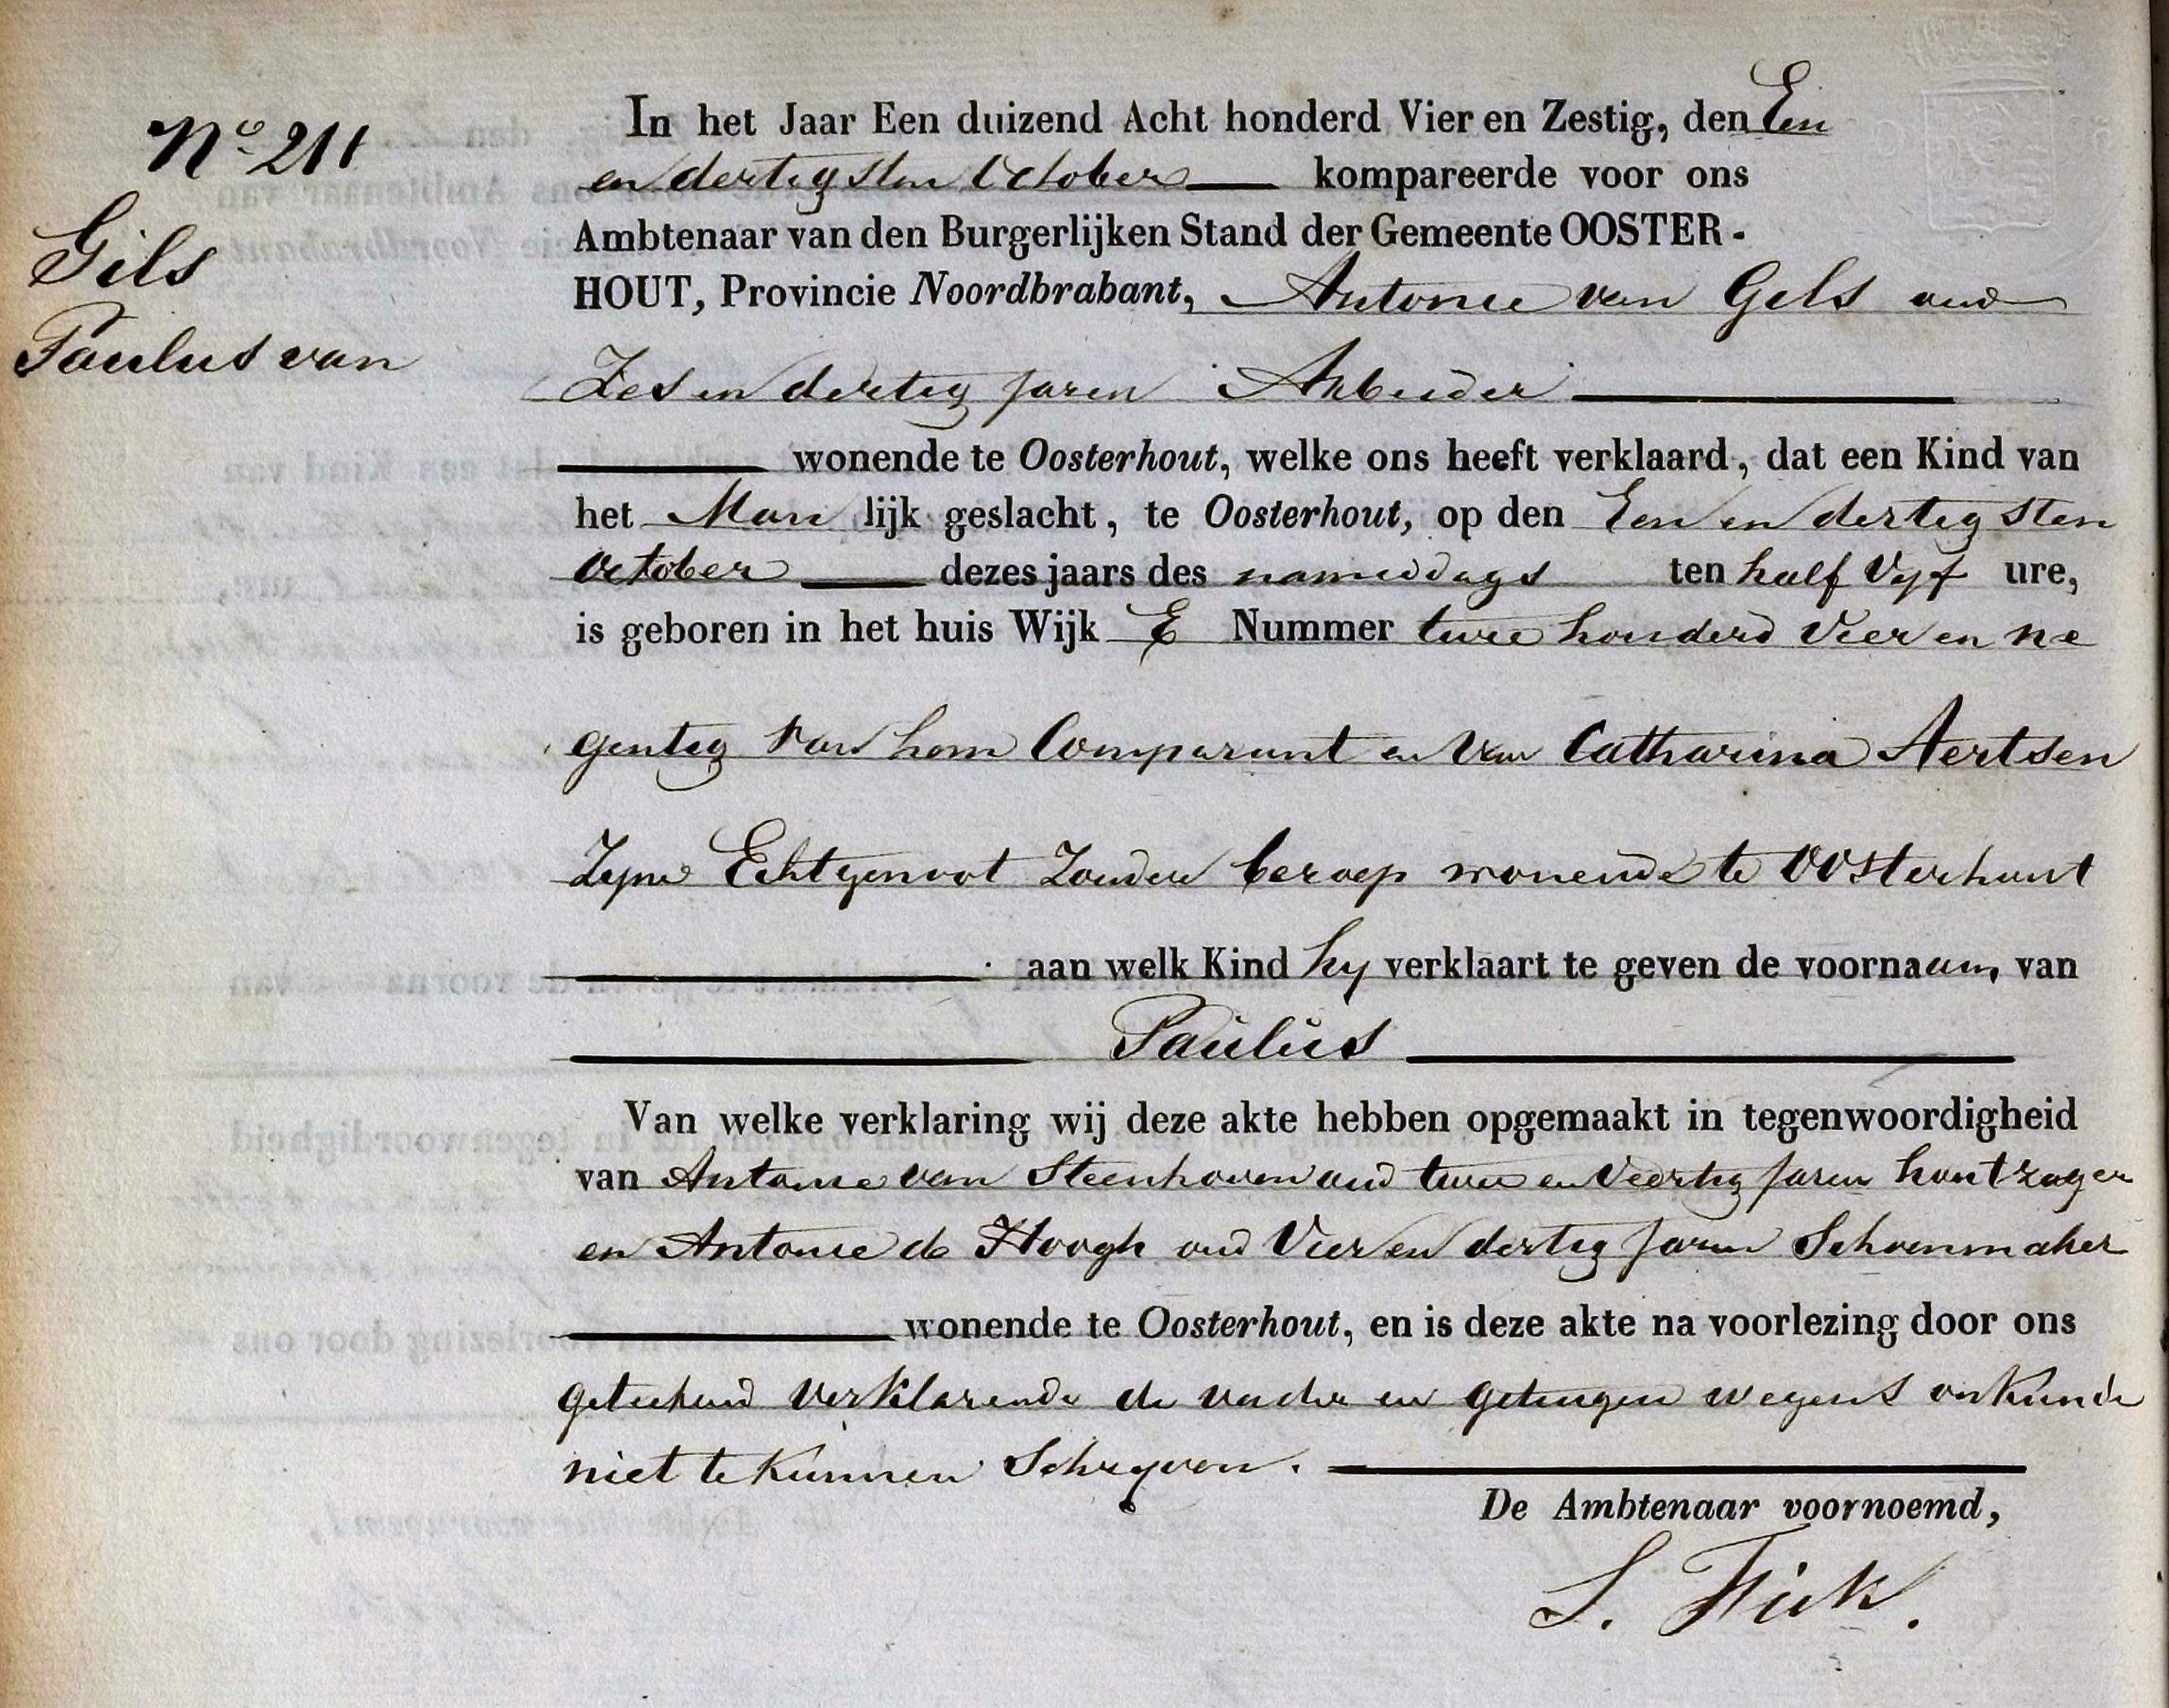 No 211
Gils
Paulus van
In het Jaar Een duizend Acht honderd Vier en Zestig, den Een
en dertigsten October kompareerde voor ons
Ambtenaar van den Burgerlijken Stand der Gemeente OOSTER-
HOUT, Provincie Noordbrabant, Antonie van Gils oud
Zes en dertig jaren Arbeider
wonende te Oosterhout, welke ons heeft verklaard, dat een Kind van
het Man lijk geslacht, te Oosterhout, op den Een en dertigsten
October dezes jaars des namiddags ten half Vyf ure,
is geboren in het huis Wijk E Nummer twee honderd Vier en ne
gentig van hem Comparant en van Catharina Aertsen
Zyne Echtgenoot Zonder beroep wonende te Oosterhout
aan welk Kind hy verklaart te geven de voornaam van
Paulus
Van welke verklaring wij deze akte hebben opgemaakt in tegenwoordigheid
van Antonie van Steenhoven oud twee en Veertig jaren houtzager
en Antonie de Hoogh oud Vier en dertig jaren Schoenmaker
wonende te Oosterhout, en is deze akte na voorlezing door ons
geteekend verklarende de vader en getuigen wegens onkunde
niet te kunnen Schryven.
De Ambtenaar voornoemd,